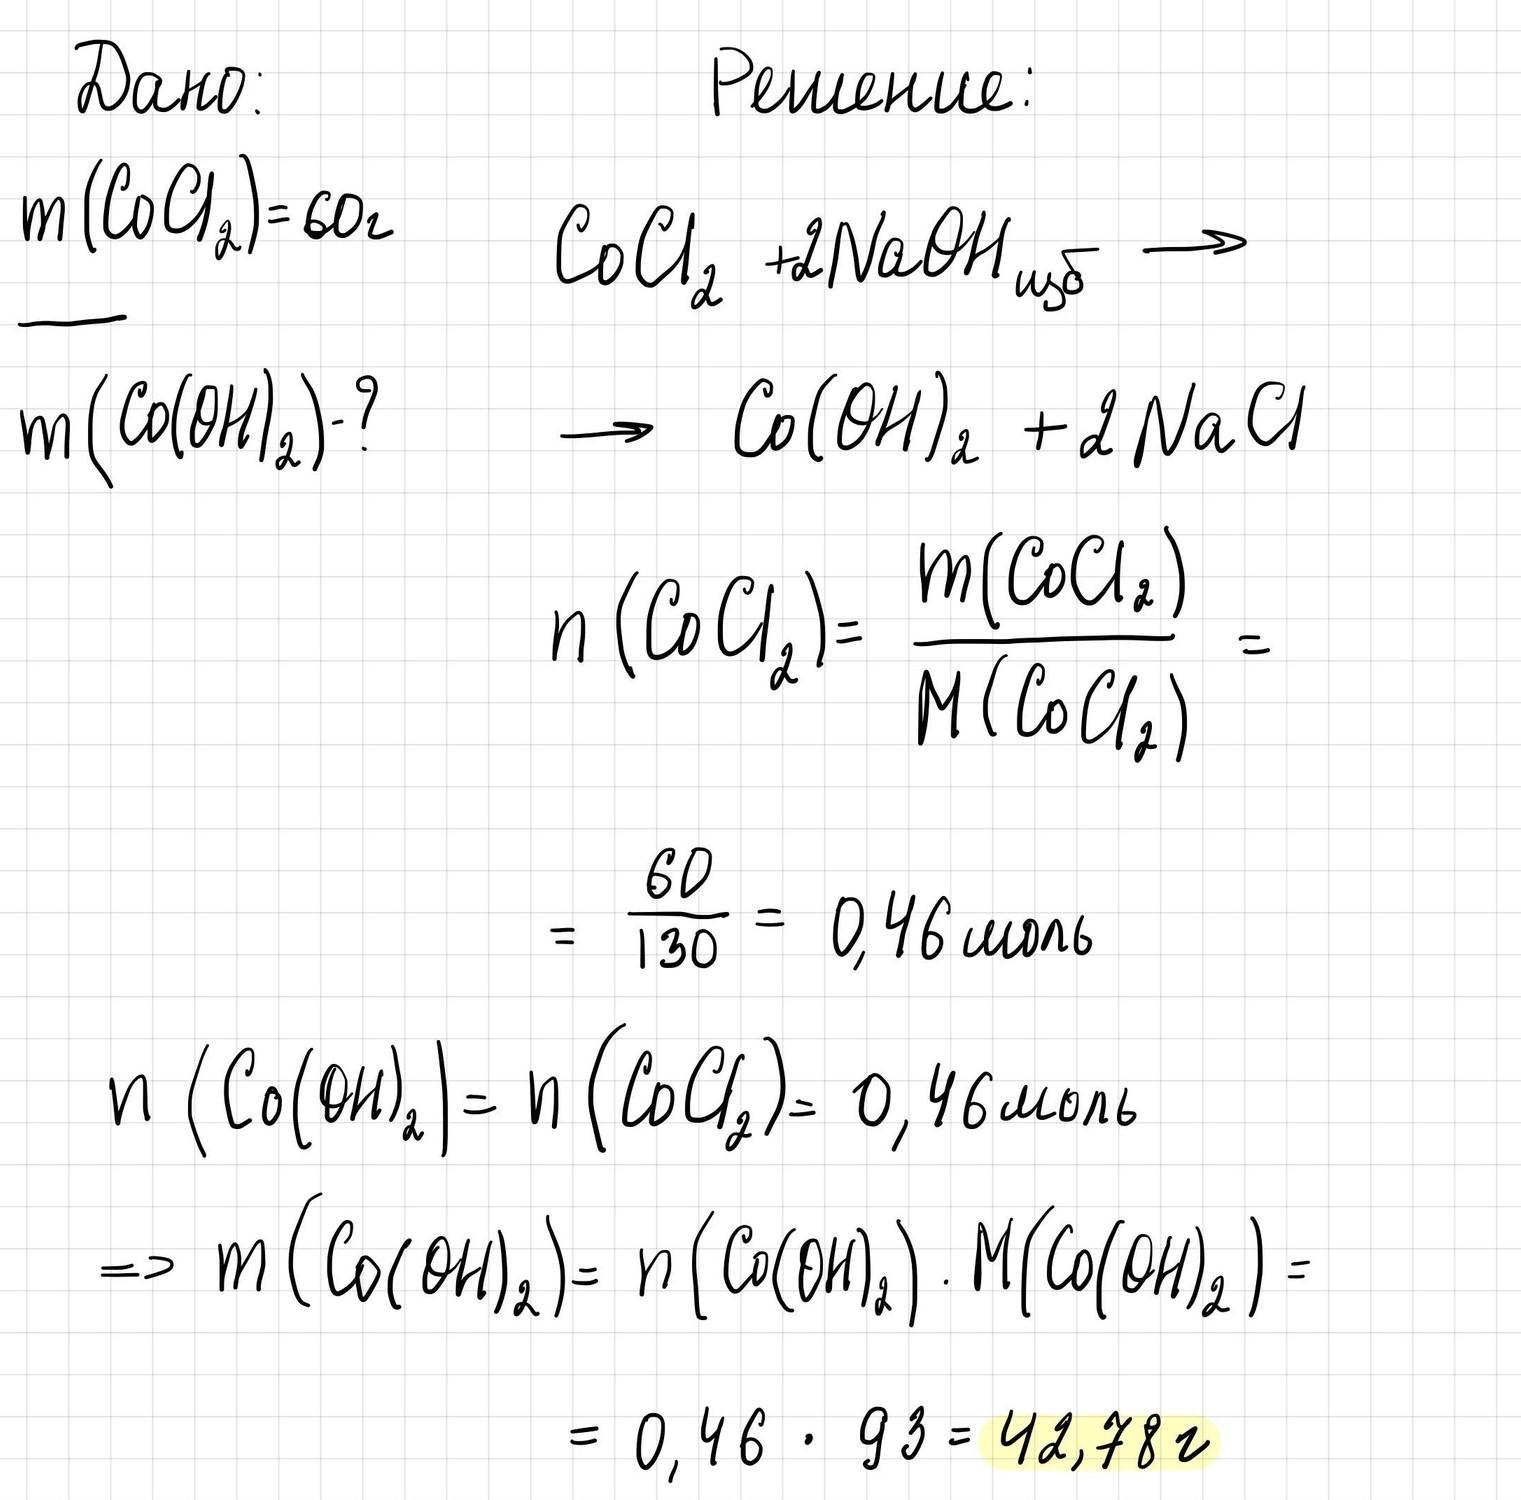 Дано:
Решение:
m(CoCl₂)=60г
CoCl₂ +2NaOH изб →
m(Co(OH)₂)-?
→ Co(OH)₂ +2NaCl
n(CoCl₂)= m(CoCl₂) / M(CoCl₂) =
= 60/130 = 0,46 моль
n(Co(OH)₂)= n(CoCl₂)= 0,46 моль
=> m(Co(OH)₂)= n(Co(OH)₂)·M(Co(OH)₂)=
= 0,46 · 93 = 42,78г